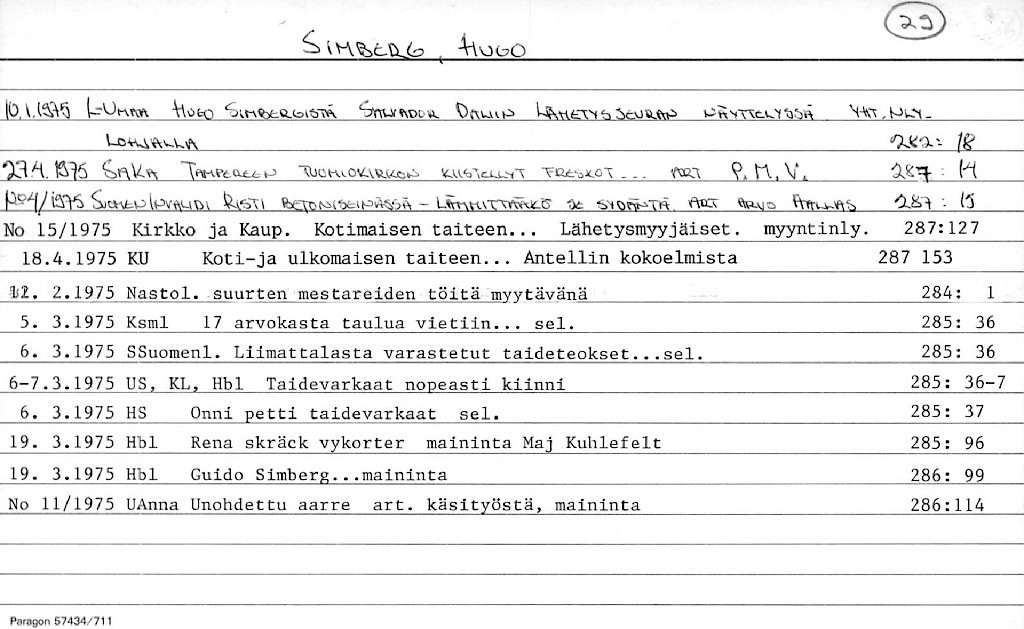 29
SIMBERG, HUGO
10.1.1975 L-UMAA HUGO SIMBERGISTÄ SALVADOR DALIIN LÄHETYSSEURAN NÄYTTELYSSÄ YHT.NLY-
LOHJALLA 282: 18
27.4.1975 SAKA TAMPEREEN TUOMIOKIRKON KIISTELLYT FRESKOT... ART P.M.V. 287: 14
No 4/1975 SUOMEN INVALIDI RISTI BETONISEINÄSSÄ - LÄMMITTÄÄKÖ SE SYDÄNTÄ. ART ARVO 287: 15
No 15/1975 Kirkko ja Kaup. Kotimaisen taiteen... Lähetysmyyjäiset. myyntinly. 287:127
18.4.1975 KU Koti-ja ulkomaisen taiteen... Antellin kokoelmista 287 153
12. 2.1975 Nastol. suurten mestareiden töitä myytävänä 284: 1
5. 3.1975 Ksml 17 arvokasta taulua vietiin... sel. 285: 36
6. 3.1975 SSuomenl. Liimattalasta varastetut taideteokset...sel. 285: 36
6-7.3.1975 US, KL, Hbl Taidevarkaat nopeasti kiinni 285: 36-7
6. 3.1975 HS Onni petti taidevarkaat sel. 285: 37
19. 3.1975 Hbl Rena skräck vykorter maininta Maj Kuhlefelt 285: 96
19. 3.1975 Hbl Guido Simberg...maininta 286: 99
No 11/1975 UAnna Unohdettu aarre art. käsityöstä, maininta 286:114
Paragon 57434/711